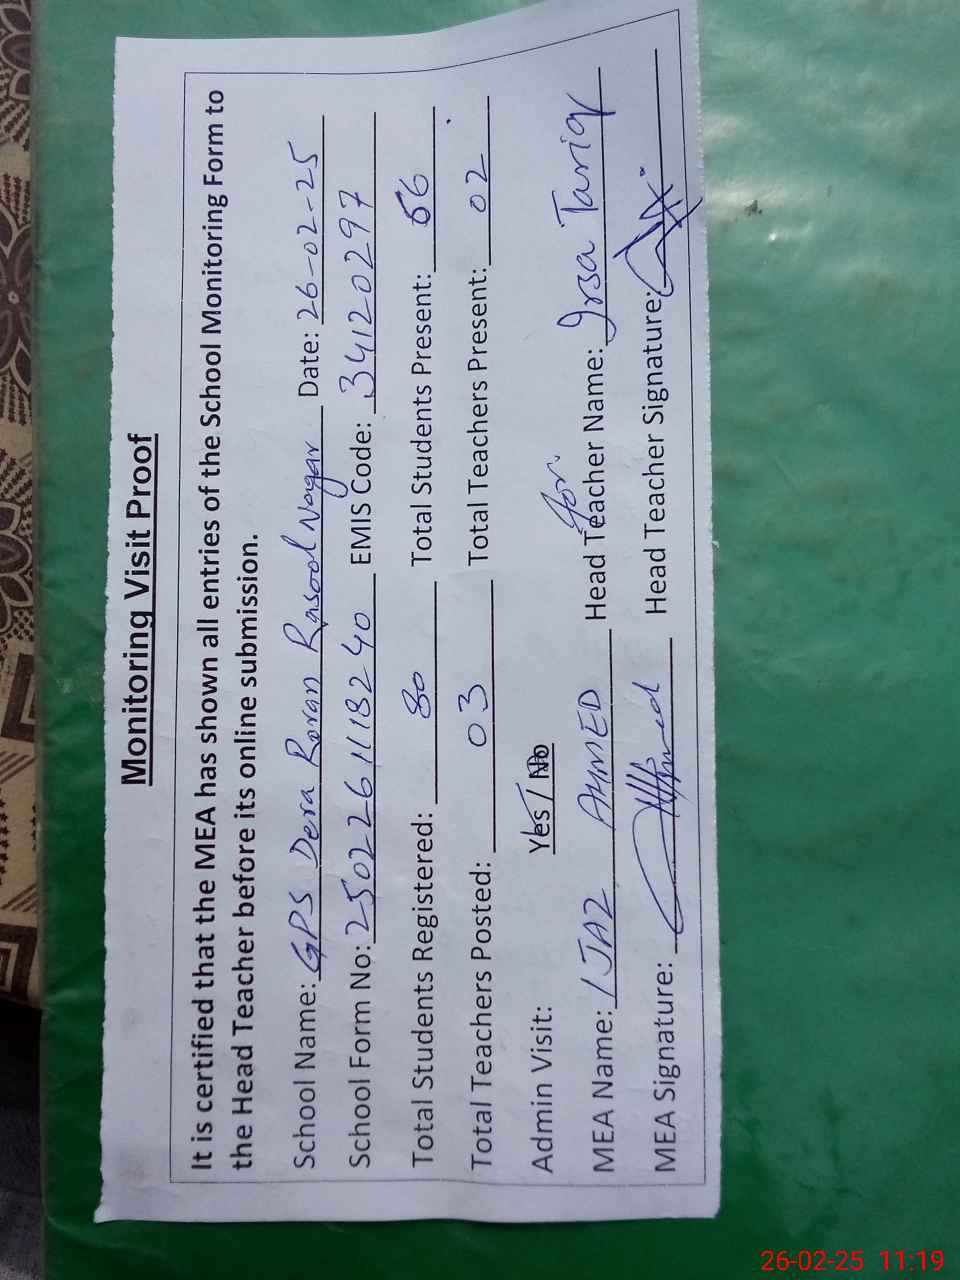 Monitoring Visit Proof
It is certified that the MEA has shown all entries of the School Monitoring Form to
the Head Teacher before its online submission.
School Name: GPS Dera Roran Rasool Nagar Date: 26-02-25
School Form No: 250226111118240 EMIS Code: 34120297
Total Students Registered: 80 Total Students Present: 56
Total Teachers Posted: 03 Total Teachers Present: 02
Admin Visit: Yes / No
for
MEA Name: IJAZ AHMED Head Teacher Name: Irsa Tariq
MEA Signature: Head Teacher Signature:
26-02-25 11:19